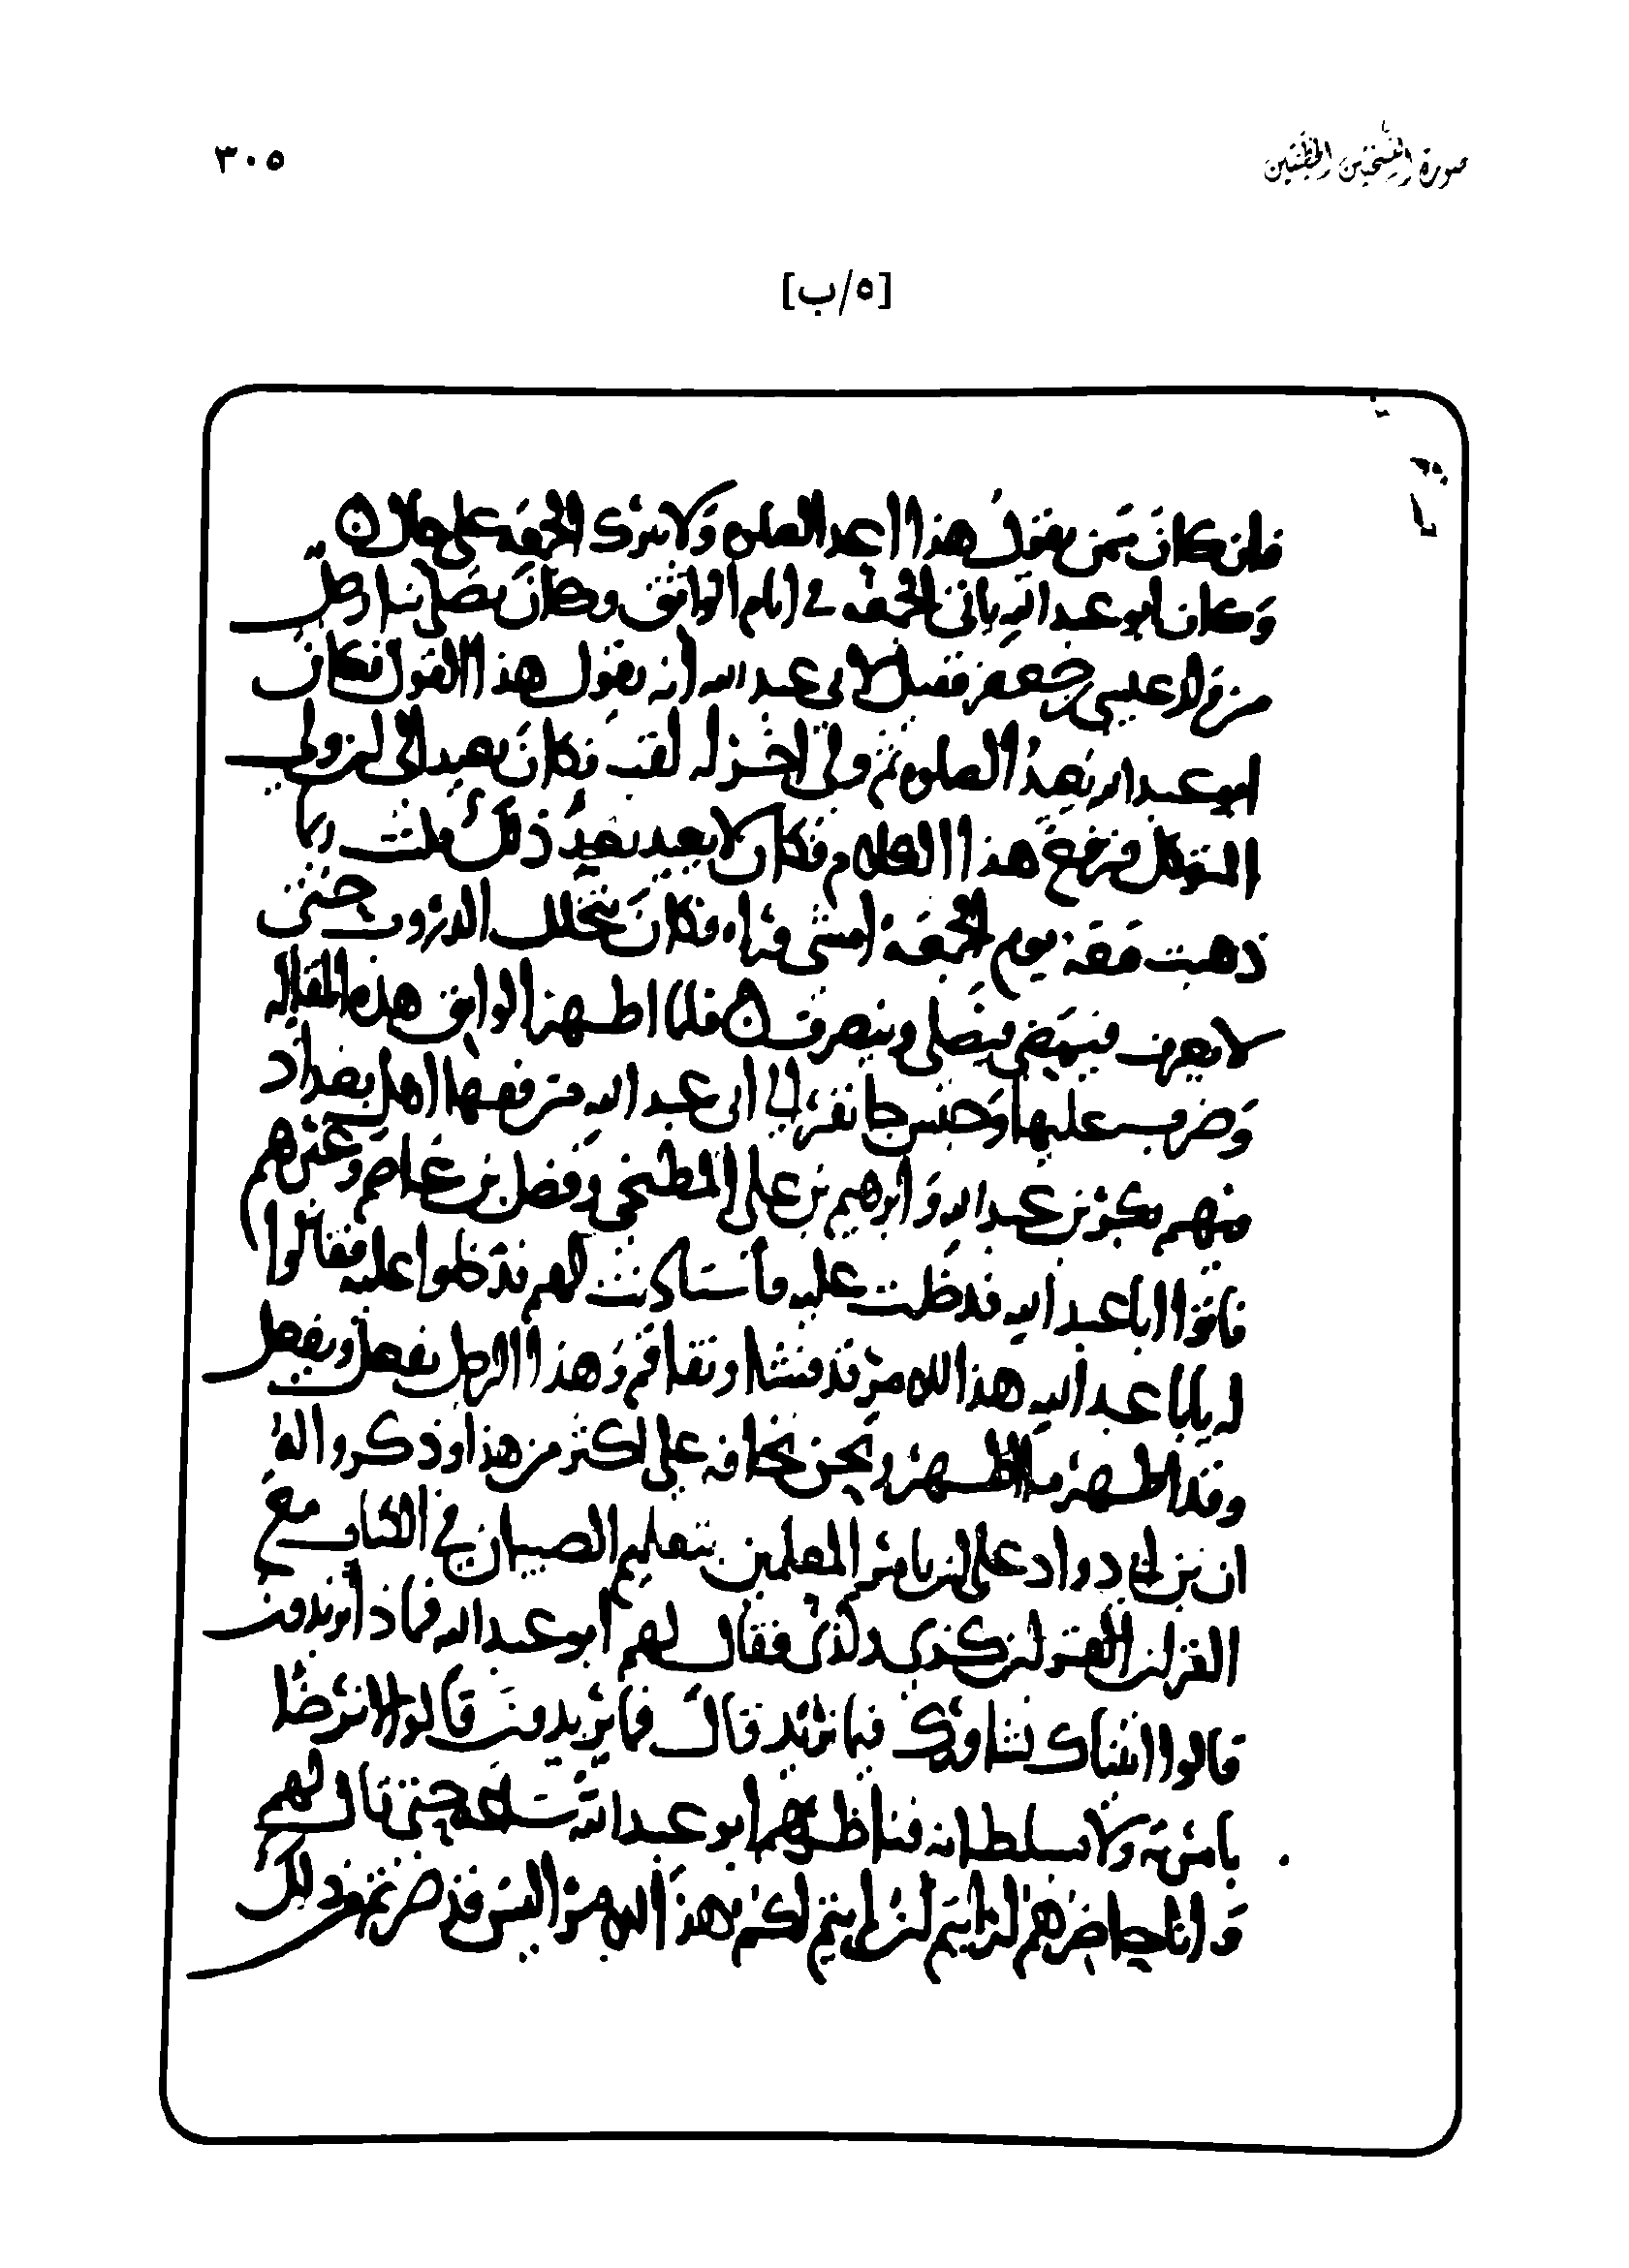 صورة النسختين الخطيتين
٣٠٥
[٥/ب]
فان كان ممن يقول هذا اعد الصلاه ولا تترك الجمعه على حال
وكان ابو عبد الله ياتي الجمعه في ايام الواثق وكان يصلي بنا رجل
من ولد عيسى بن جعفر فقيل لابي عبد الله انه يقول هذا القول فكان
ابو عبد الله يعيد الصلاه ثم ولي اخر له لقب فكان يعيد الى ان ولي
المتوكل فرفع هذا الكلام فكان لا يعيد بعد ذلك قلت ربما
ذهبت معه يوم الجمعه امشي وراه فكان يتخلل الدروب حتى
لا يعرف فيمضي فيصلي وينصرف فلما اظهر الواثق هذه المقاله
وضرب عليها وحبس جا نفر الى ابي عبد الله من فقها اهل بغداد
منهم بكر بن عبد الله وابرهيم بن علي المطبخي وفضل بن عاصم وغيرهم
فاتوا ابا عبد الله فدخلت عليه فاستاذنت لهم فدخلوا عليه فقالوا
له يابا عبد الله هذا الامر قد فشا وتفاقم وهذا الرجل يفعل ويفعل
وقد اظهر ما اظهر ونحن نخافه على اكثر من هذا وذكروا له
ان بن ابي دواد على ان يامر المعلمين بتعليم الصبيان في الكتاب مع
القران القران كذى وكذى فقال لهم ابو عبد الله فماذا تريدون
قالوا اتيناك نشاورك فيما نريد قال فما تريدون قالوا لا نرضا
بامرته ولا بسلطانه فناظرهم ابو عبد الله ساعه حتى قال لهم
وانا حاضرهم ارايتم ان لم يتم لكم هذا الامر اليس قد صرتم من ذلك